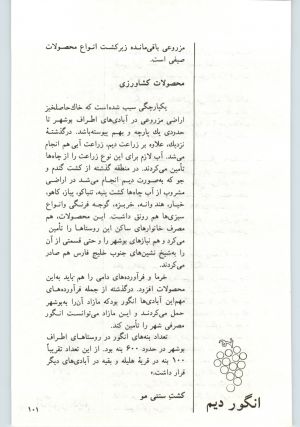 مزروعی باقی‌مانده زیرکشت انواع محصولات
صیفی است.
محصولات کشاورزی
یکپارچگی سبب شده‌است که خاك‌حاصلخیز
اراضی مزروعی در آبادی‌های اطراف بوشهر تا
حدودی یك پارچه و بهم پیوسته‌باشد. درگذشتهٔ
نزدیك، علاوه بر زراعت دیم، زراعت آبی هم انجام
می‌شد. آب لازم برای این نوع زراعت را از چاه‌ها
تأمین می‌کردند. در منطقه گذشته از کشت گندم و
جو که به‌صورت دیم انجام می‌شد در اراضی
مشروب از آب چاه‌ها کشت پنبه، تنباکو، پیاز، کاهو،
خیار، هندوانه، خربزه، گوجه فرنگی وانواع
سبزی‌ها هم رونق داشت. این محصولات، هم
مصرف خانوارهای ساکن این روستاها را تأمین
می‌کرد و هم نیازهای بوشهر را و حتی قسمتی از آن
را به‌شیخ نشین‌های جنوب خلیج فارس هم صادر
می‌کردند.
خرما و فرآورده‌های دامی را هم باید به‌این
محصولات افزود. درگذشته از جمله فرآورده‌های
مهم‌این آبادی‌ها انگور بودکه مازاد آن‌را به‌بوشهر
حمل می‌کردند و این مازاد می‌توانست انگور
مصرفی شهر را تأمین کند.
تعداد بنه‌های انگور در روستاهای اطراف
بوشهر در حدود ۶۰۰ بنه بود. از این تعداد تقریباً
۱۰۰ بنه در قریهٔ هلیله و بقیه در آبادی‌های دیگر
قرار داشت»
کشت سنتی مو
انگور دیم
۱۰۱